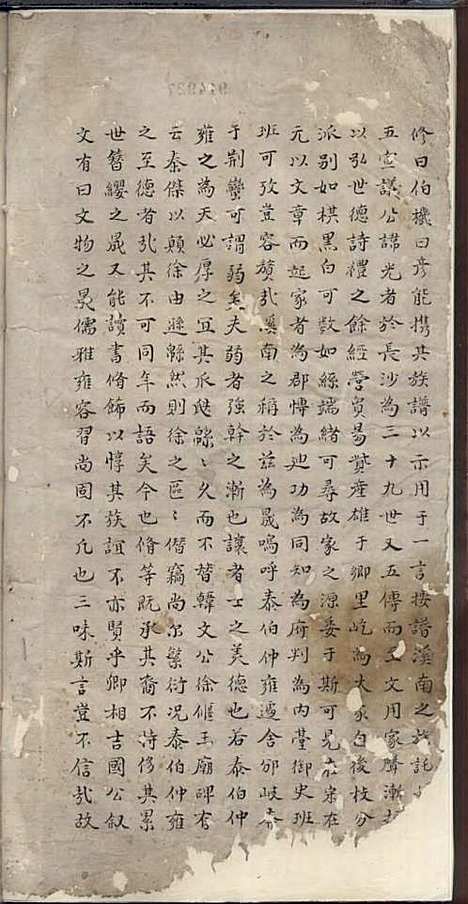 修曰伯機曰彦能携其族譜以示用于一言按譜溪南之族託
五官議公諱光者於長沙為三十九世又五傳而至文用家驣漸
以弘世德詩禮之餘經營貿昜貲產雄于鄉里屹為大家自後枝分
派別如棋黑白可数如絲端緒可尋故家之源委于斯可見宋在
元以文章而起家者為郡慱為廸功為同知為府判為內臺御史班
班可攷豈容贅㢤溪南之稱於茲為晟嗚呼泰伯仲雍遜舍邠岐奔
于荆蠻可謂弱矣夫弱者強幹之漸也讓者士之美德也若泰伯仲
雍之為天必厚之宜其瓜瓞緜〻久而不替韓文公徐偃王廟碑有
云秦傑以顛徐由遜緜然則徐之區〻僭竊尚尔蕃衍况泰伯仲雍
之至德者㢤其不可同年而語矣今也脩等既承其裔不特侈其累
世簪纓之晟又能讀書脩飾以惇其族誼不亦賢乎卿相吉國公叙
文有曰文物之晟儒雅雍容習尚固不凢也三味斯言豈不信㢤故